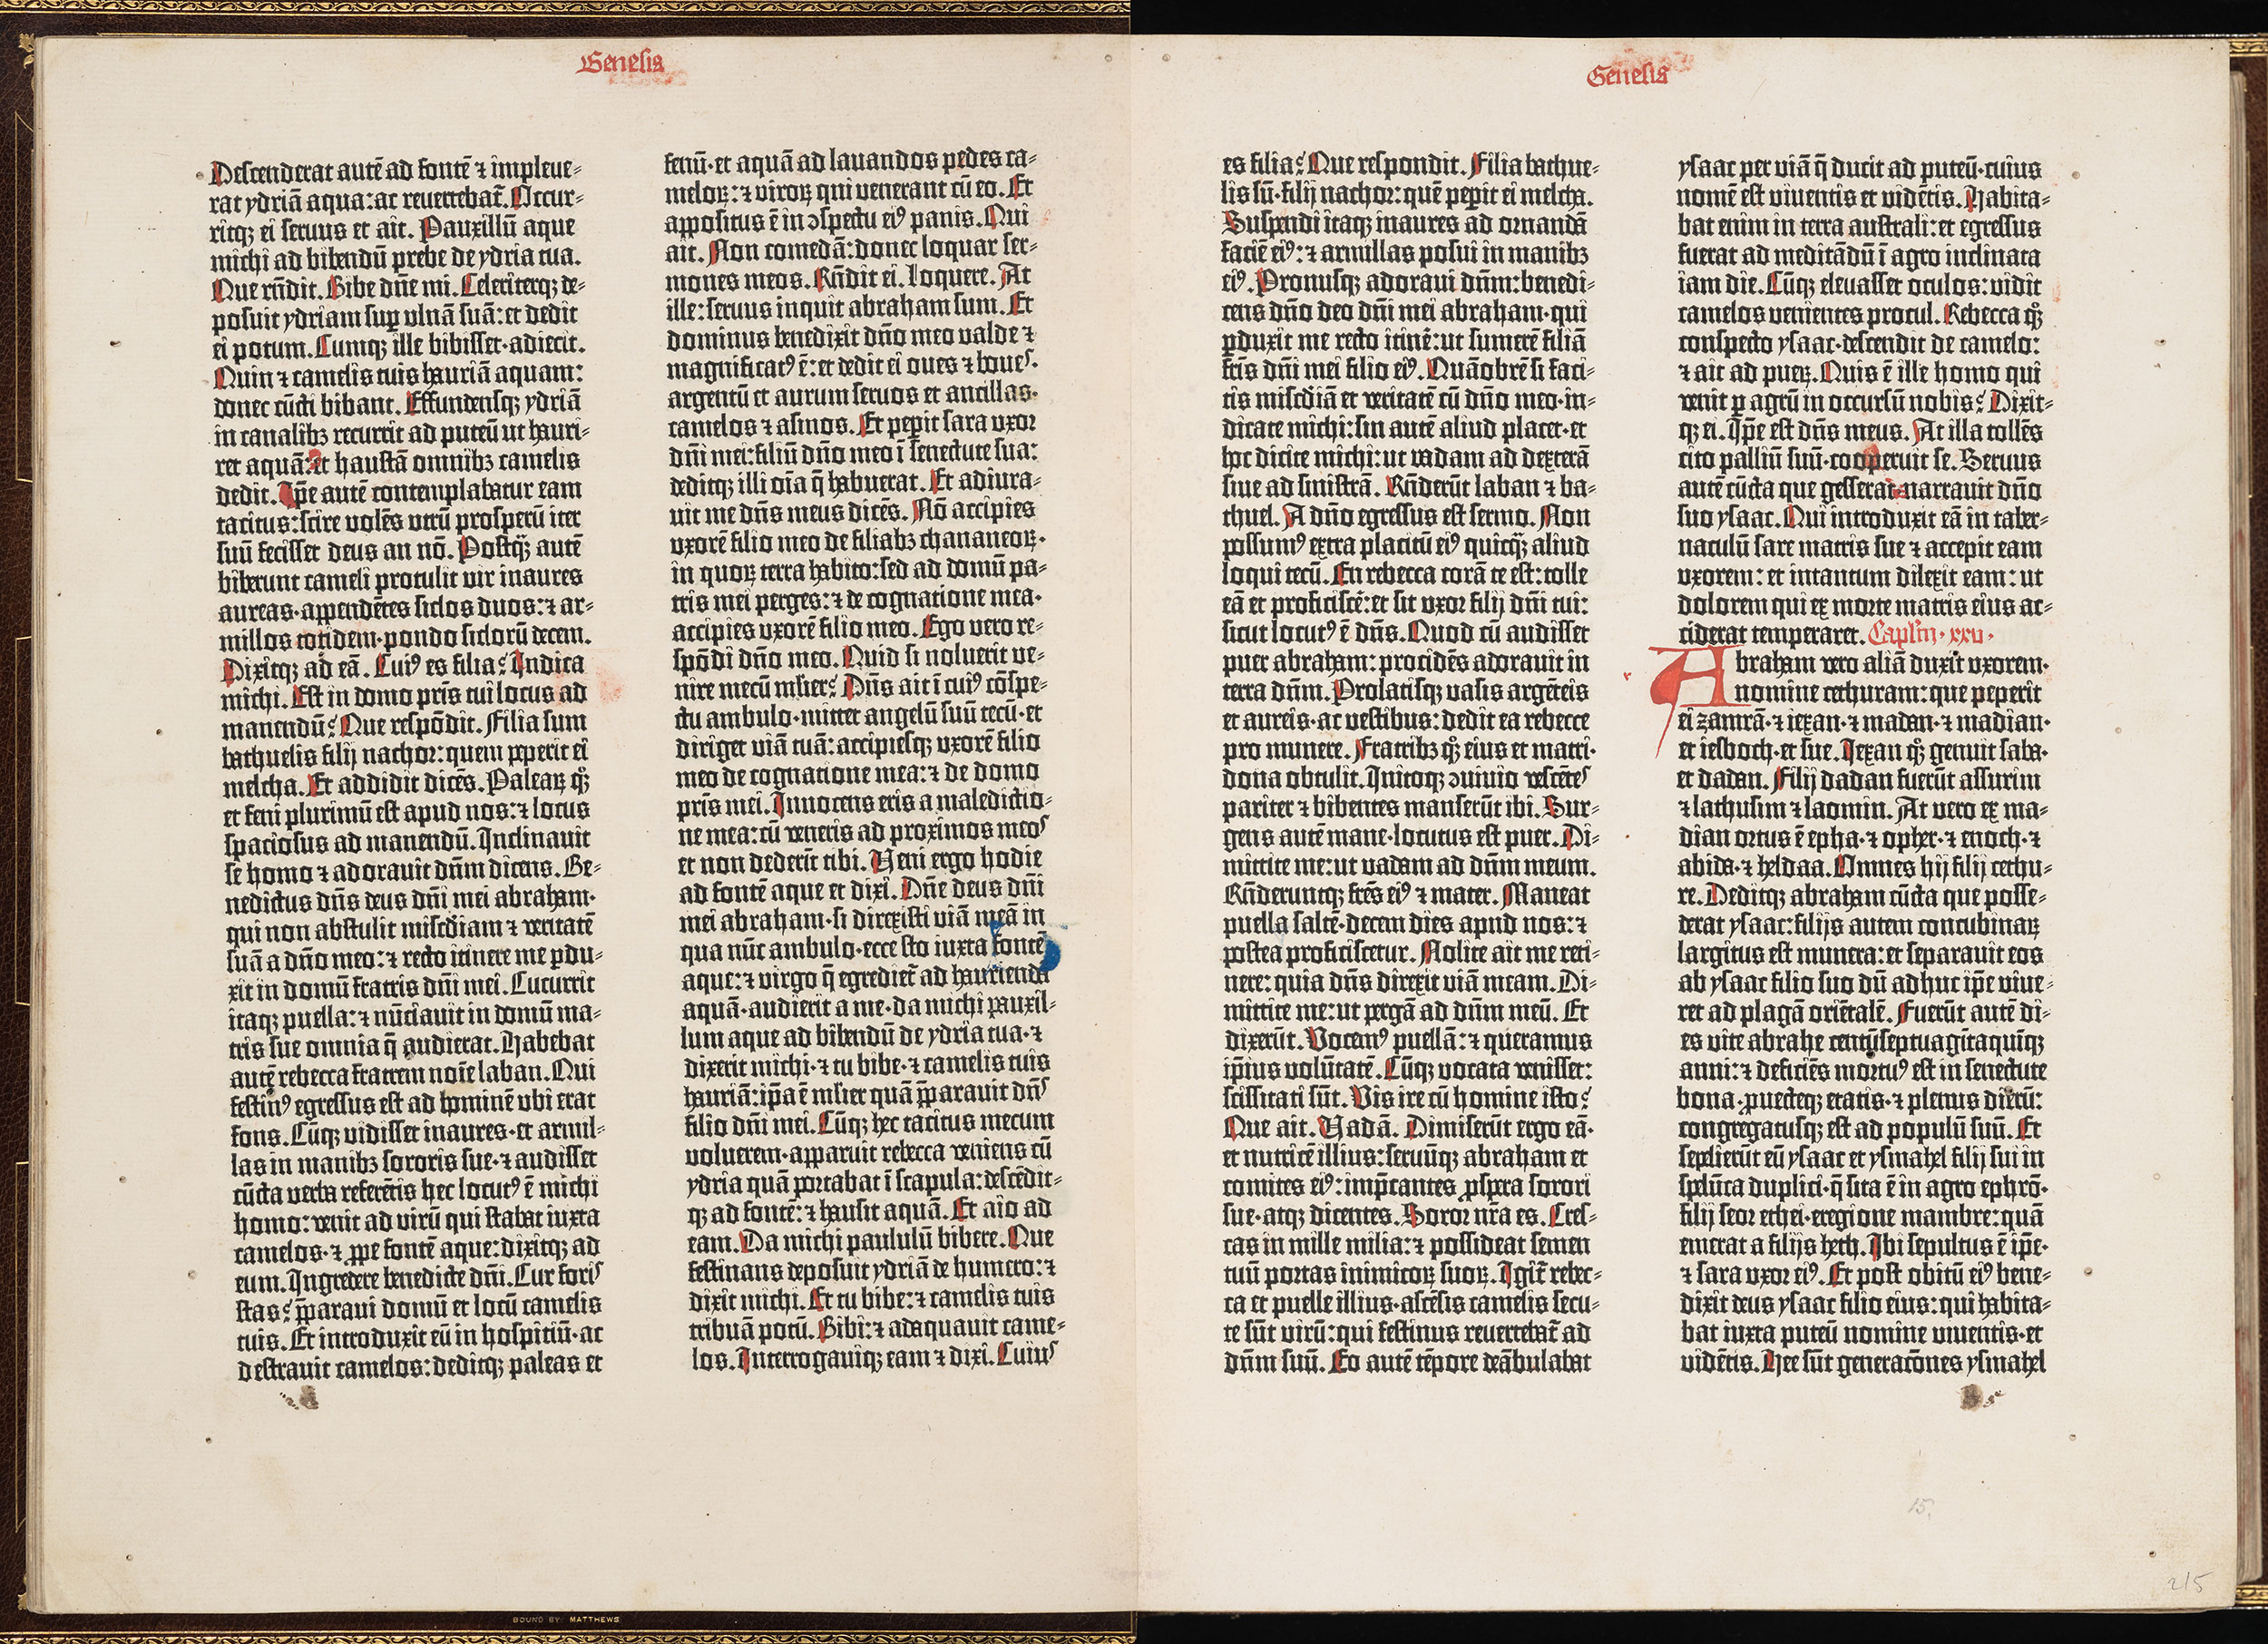 Genesis
Descenderat autē ad fontē ⁊ impleue-
rat ydriā aqua: ac reuertebat̄. Occur-
ritqꝫ ei seruus et ait. Pauxillū aque
michi ad bibendū prebe de ydria tua.
Que rn̄dit. Bibe dn̄e mi. Celeriterqꝫ de-
posuit ydriam suꝑ vlnā suā: et dedit
ei potum. Cumqꝫ ille bibisset· adiecit.
Quin ⁊ camelis tuis hauriā aquam:
donec cūcti bibant. Effundensqꝫ ydriā
in canalibꝫ recurrit ad puteū ut hauri-
ret aquā: et haustā omnibꝫ camelis
dedit. Ip̄e autē contemplabatur eam
tacitus: scire volēs vtrū prosperū iter
suū fecisset deus an nō. Postqͣ̄ autē
biberunt cameli protulit vir inaures
aureas· appendētes siclos duos: ⁊ ar-
millos totidem· pondo siclorū decem.
Dixitqꝫ ad eā. Cuiꝰ es filia? Indica
michi. Est in domo pr̄is tui locus ad
manendū? Que respōdit. Filia sum
bathuelis filij nachor: quem peperit ei
melcha. Et addidit dicēs. Paleaꝝ qͦꝫ
et feni plurimū est apud nos: ⁊ locus
spaciosus ad manendū. Inclinauit
se homo ⁊ adorauit dn̄m dicens. Be-
nedictus dn̄s deus dn̄i mei abraham·
qui non abstulit misc̄diam ⁊ veritatē
suā a dn̄o meo: ⁊ recto itinere me ꝑdu-
xit in domū fratris dn̄i mei. Cucurrit
itaqꝫ puella: ⁊ nūciauit in domū ma-
tris sue omnia q̄ audierat. Habebat
autē rebecca fratrem noīe laban. Qui
festinꝰ egressus est ad hominē vbi erat
fons. Cūqꝫ vidisset inaures· et armil-
las in manibꝫ sororis sue· ⁊ audisset
cūcta verba referētis hec locutꝰ ē michi
homo: venit ad virū qui stabat iuxta
camelos· ⁊ ꝓpe fontē aque: dixitqꝫ ad
eum. Ingredere benedicte dn̄i. Cur foris
stas? p̄paraui domū et locū camelis
tuis. Et introduxit eū in hospitiū· ac
destrauit camelos: deditqꝫ paleas et
fenū· et aquā ad lauandos pedes ca-
meloꝝ: ⁊ viroꝝ qui venerant cū eo. Et
appositus ē in ↄspectu eiꝰ panis. Qui
ait. Non comedā: donec loquar ser-
mones meos. Rn̄dit ei. Loquere. At
ille: seruus inquit abraham sum. Et
dominus benedixit dn̄o meo valde ⁊
magnificatꝰ ē: et dedit ei oues ⁊ boues·
argentū et aurum seruos et ancillas·
camelos ⁊ asinos. Et peperit sara vxor
dn̄i mei: filiū dn̄o meo ī senectute sua:
deditqꝫ illi oīa q̄ habuerat. Et adiura-
uit me dn̄s meus dicēs. Nō accipies
vxorē filio meo de filiabꝫ chananeoꝝ·
in quoꝝ terra habito: sed ad domū pa-
tris mei perges: ⁊ de cognatione mea·
accipies vxorē filio meo. Ego vero re-
spōdi dn̄o meo. Quid si noluerit ve-
nire mecū ml̄ier? Dn̄s ait ī cuiꝰ cōspe-
ctu ambulo· mittet angelū suū tecū· et
diriget viā tuā: accipiesqꝫ vxorē filio
meo de cognatione mea: ⁊ de domo
pr̄is mei. Innocens eris a maledictio-
ne mea: cū veneris ad proximos meos
et non dederīt tibi. Veni ergo hodie
ad fontē aque et dixi. Dn̄e deus dn̄i
mei abraham· si direxisti viā meā in
qua nūc ambulo· ecce sto iuxta fontē
aque: ⁊ virgo q̄ egrediet̄ ad hauriendā
aquā· audierit a me· da michi pauxil-
lum aque ad bibendū de ydria tua· ⁊
dixerit michi· ⁊ tu bibe· ⁊ camelis tuis
hauriā: ip̄a ē ml̄ier quā p̄parauit dn̄s
filio dn̄i mei. Cūqꝫ hec tacitus mecum
voluerem· apparuit rebecca veniens cū
ydria quā portabat ī scapula: descēdit-
qꝫ ad fontē: ⁊ hausit aquā. Et aio ad
eam. Da michi paululū bibere. Que
festinans deposuit ydriā de humero: ⁊
dixit michi. Et tu bibe: ⁊ camelis tuis
tribuā potū. Bibi: ⁊ adaquauit came-
los. Interrogauiqꝫ eam ⁊ dixi. Cuius
Genesis
es filia? Que respondit. Filia bathue-
lis sū· filij nachor: quē peperit ei melcha.
Suspendi itaqꝫ inaures ad ornandā
faciē eiꝰ: ⁊ armillas posui in manibꝫ
eiꝰ. Pronusqꝫ adoraui dn̄m: benedi-
cens dn̄o deo dn̄i mei abraham· qui
ꝑduxit me recto itinē: ut sumerē filiā
fr̄is dn̄i mei filio eiꝰ. Quāobrē si faci-
tis misc̄diā et veritatē cū dn̄o meo· in-
dicate michi: sin autē aliud placet· et
hoc dicite michi: ut vadam ad dexterā
siue ad sinistrā. Rn̄derūt laban ⁊ ba-
thuel. A dn̄o egressus est sermo. Non
possumꝰ extra placitū eiꝰ quicqͣ̄ aliud
loqui tecū. En rebecca corā te est: tolle
eā et proficiscē: et sit vxor filij dn̄i tui:
sicut locutꝰ ē dn̄s. Quod cū audisset
puer abraham: procidēs adorauit in
terra dn̄m. Prolatisqꝫ vasis argēteis
et aureis· ac vestibus: dedit ea rebecce
pro munere. Fratribꝫ qͦꝫ eius et matri·
dona obtulit. Initoqꝫ ↄuiuio vescētes
pariter ⁊ bibentes manserūt ibi. Sur-
gens autē mane· locutus est puer. Di-
mittite me: ut vadam ad dn̄m meum.
Rn̄deruntqꝫ fr̄es eiꝰ ⁊ mater. Maneat
puella saltē· decem dies apud nos: ⁊
postea proficiscetur. Nolite ait me reti-
nere: quia dn̄s direxit viā meam. Di-
mittite me: ut pergā ad dn̄m meū. Et
dixerūt. Vocemꝰ puellā: ⁊ queramus
ip̄ius volūtatē. Cūqꝫ vocata venisset:
sciscitati sūt. Vis ire cū homine isto?
Que ait. Vadā. Dimiserūt ergo eā·
et nutricē illius: seruūqꝫ abraham et
comites eiꝰ: imp̄cantes ꝓspera sorori
sue· atqꝫ dicentes. Soror nr̄a es. Cres-
cas in mille milia: ⁊ possideat semen
tuū portas inimicoꝝ suoꝝ. Igit̄ rebec-
ca et puelle illius· ascēsis camelis secu-
te sūt virū: qui festinus reuertebat̄ ad
dn̄m suū. Eo autē tēpore deābulabat
ysaac per viā q̄ ducit ad puteū· cuius
nomē est viuentis et vidētis. Habita-
bat enim in terra australi: et egressus
fuerat ad meditādū ī agro inclinata
iam die. Cūqꝫ eleuasset oculos: vidit
camelos venientes procul. Rebecca qͦꝫ
conspecto ysaac· descendit de camelo:
⁊ ait ad pueꝝ. Quis ē ille homo qui
venit ꝑ agrū in occursū nobis? Dixit-
qꝫ ei. Ip̄e est dn̄s meus. At illa tollēs
cito palliū suū· cooperuit se. Seruus
autē cūcta que gesserat narrauit dn̄o
suo ysaac. Qui introduxit eā in taber-
naculū sare matris sue ⁊ accepit eam
vxorem: et intantum dilexit eam: ut
dolorem qui ex morte matris eius ac-
ciderat temperaret. Caplm̄· xxv·
Abraham vero aliā duxit vxorem·
nomine cethuram: que peperit
ei zamrā· ⁊ iexan· ⁊ madan· ⁊ madian·
et iesboch· et sue. Iexan qͦꝫ genuit saba·
et dadan. Filij dadan fuerūt assurim
⁊ lathusim ⁊ laomin. At vero ex ma-
dian ortus ē epha· ⁊ opher· ⁊ enoch· ⁊
abida· ⁊ heldaa. Omnes hij filij cethu-
re. Deditqꝫ abraham cūcta que posse-
derat ysaac: filijs autem concubinaꝝ
largitus est munera: et separauit eos
ab ysaac filio suo dū adhuc ip̄e viue-
ret ad plagā oriētalē. Fuerūt autē di-
es vite abrahe centūseptuagītaquīqꝫ
anni: ⁊ deficiēs mortuꝰ est in senectute
bona· ꝓuecteqꝫ etatis· ⁊ plenus dierū:
congregatusqꝫ est ad populū suū. Et
sepelierūt eū ysaac et ysmahel filij sui in
spelūca duplici· q̄ sita ē in agro ephrō·
filij seor ethei· eregione mambre: quā
emerat a filijs heth. Ibi sepultus ē ip̄e·
⁊ sara vxor eiꝰ. Et post obitū eiꝰ bene-
dixit deus ysaac filio eius: qui habita-
bat iuxta puteū nomine viuentis· et
vidētis. Hee sūt generatōnes ysmahel
15.
215
BOUND BY MATTHEWS